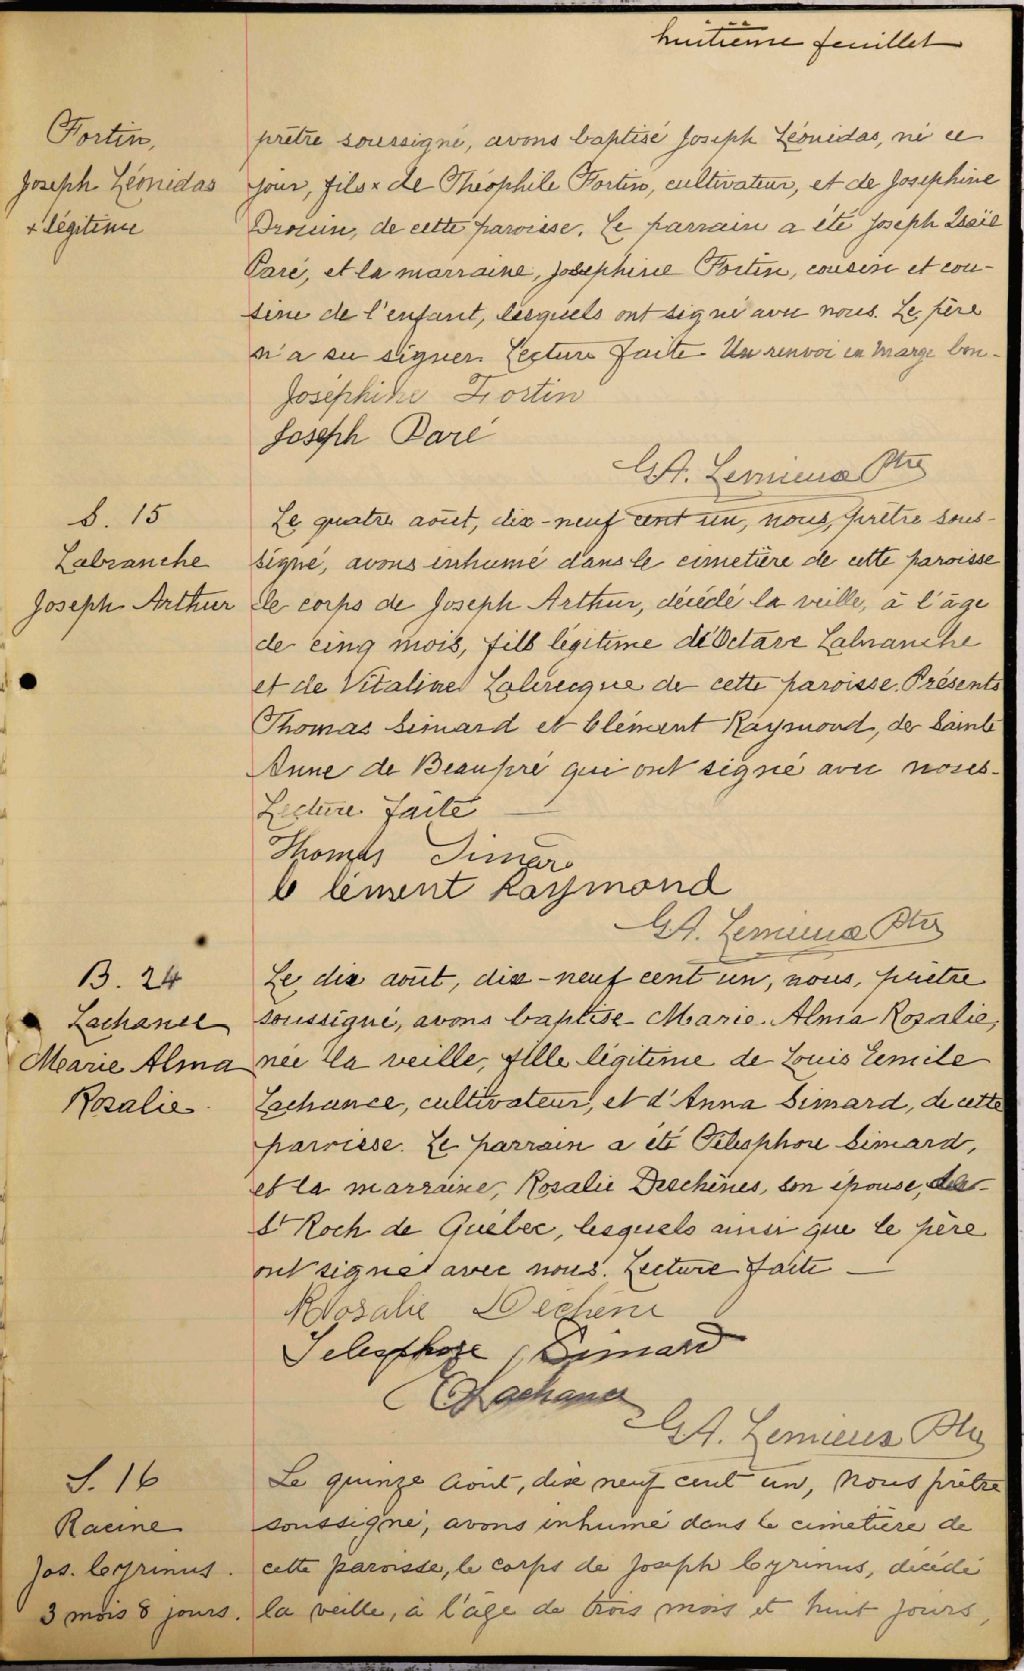 huitième feuillet
Fortin,
Joseph Léonidas
x légitime
prêtre soussigné, avons baptisé Joseph Léonidas, né ce
jour, fils x de Théophile Fortin, cultivateur, et de Josephine
Drouin, de cette paroisse. Le parrain a été Joseph Isaïe
Paré, et la marraine, Josephine Fortin, cousin et cou-
sine de l'enfant, lesquels ont signé avec nous. Le père
n'a su signer. Lecture faite. Un renvoi en marge bon-
Joséphine Fortin
Joseph Paré
G.A. Lemieux Ptre
S. 15
Labranche
Joseph Arthur
Le quatre août, dix-neuf cent un, nous, prêtre sous-
signé, avons inhumé dans le cimetière de cette paroisse
le corps de Joseph Arthur, décédé la veille, à l'âge
de cinq mois, fils légitime d'Octave Labranche
et de Vitaline Labrecque de cette paroisse. Présents
Thomas Simard et Clément Raymond, de Sainte
Anne de Beaupré qui ont signé avec nous-
Lecture faite —
Thomas Simard
Clément Raymond
G.A. Lemieux Ptre
B. 24
Lachance
Marie Alma
Rosalie
Le dix août, dix-neuf cent un, nous, prêtre
soussigné, avons baptisé Marie Alma Rosalie,
née la veille, fille légitime de Louis Emile
Lachance, cultivateur, et d'Anna Simard, de cette
paroisse. Le parrain a été Télesphore Simard,
et la marraine, Rosalie Deschênes, son épouse, de
St Roch de Québec, lesquels ainsi que le père
ont signé avec nous. Lecture faite —
Rosalie Dechène
Telesphore Simard
E Lachance
G.A. Lemieux Ptre
S. 16
Racine
Jos. Cyrinus.
3 mois 8 jours.
Le quinze août, dix neuf cent un, nous prêtre
soussigné, avons inhumé dans le cimetière de
cette paroisse, le corps de Joseph Cyrinus, décédé
la veille, à l'âge de trois mois et huit jours,